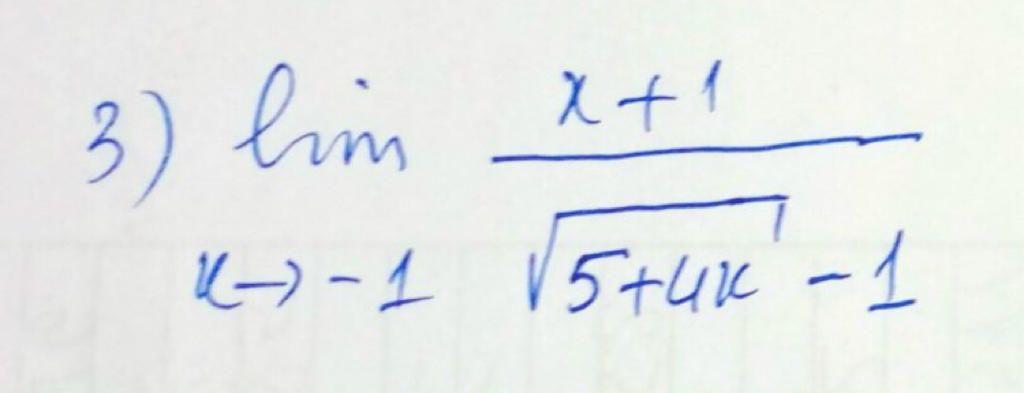 3) lim x+1
x→-1 √5+4x -1